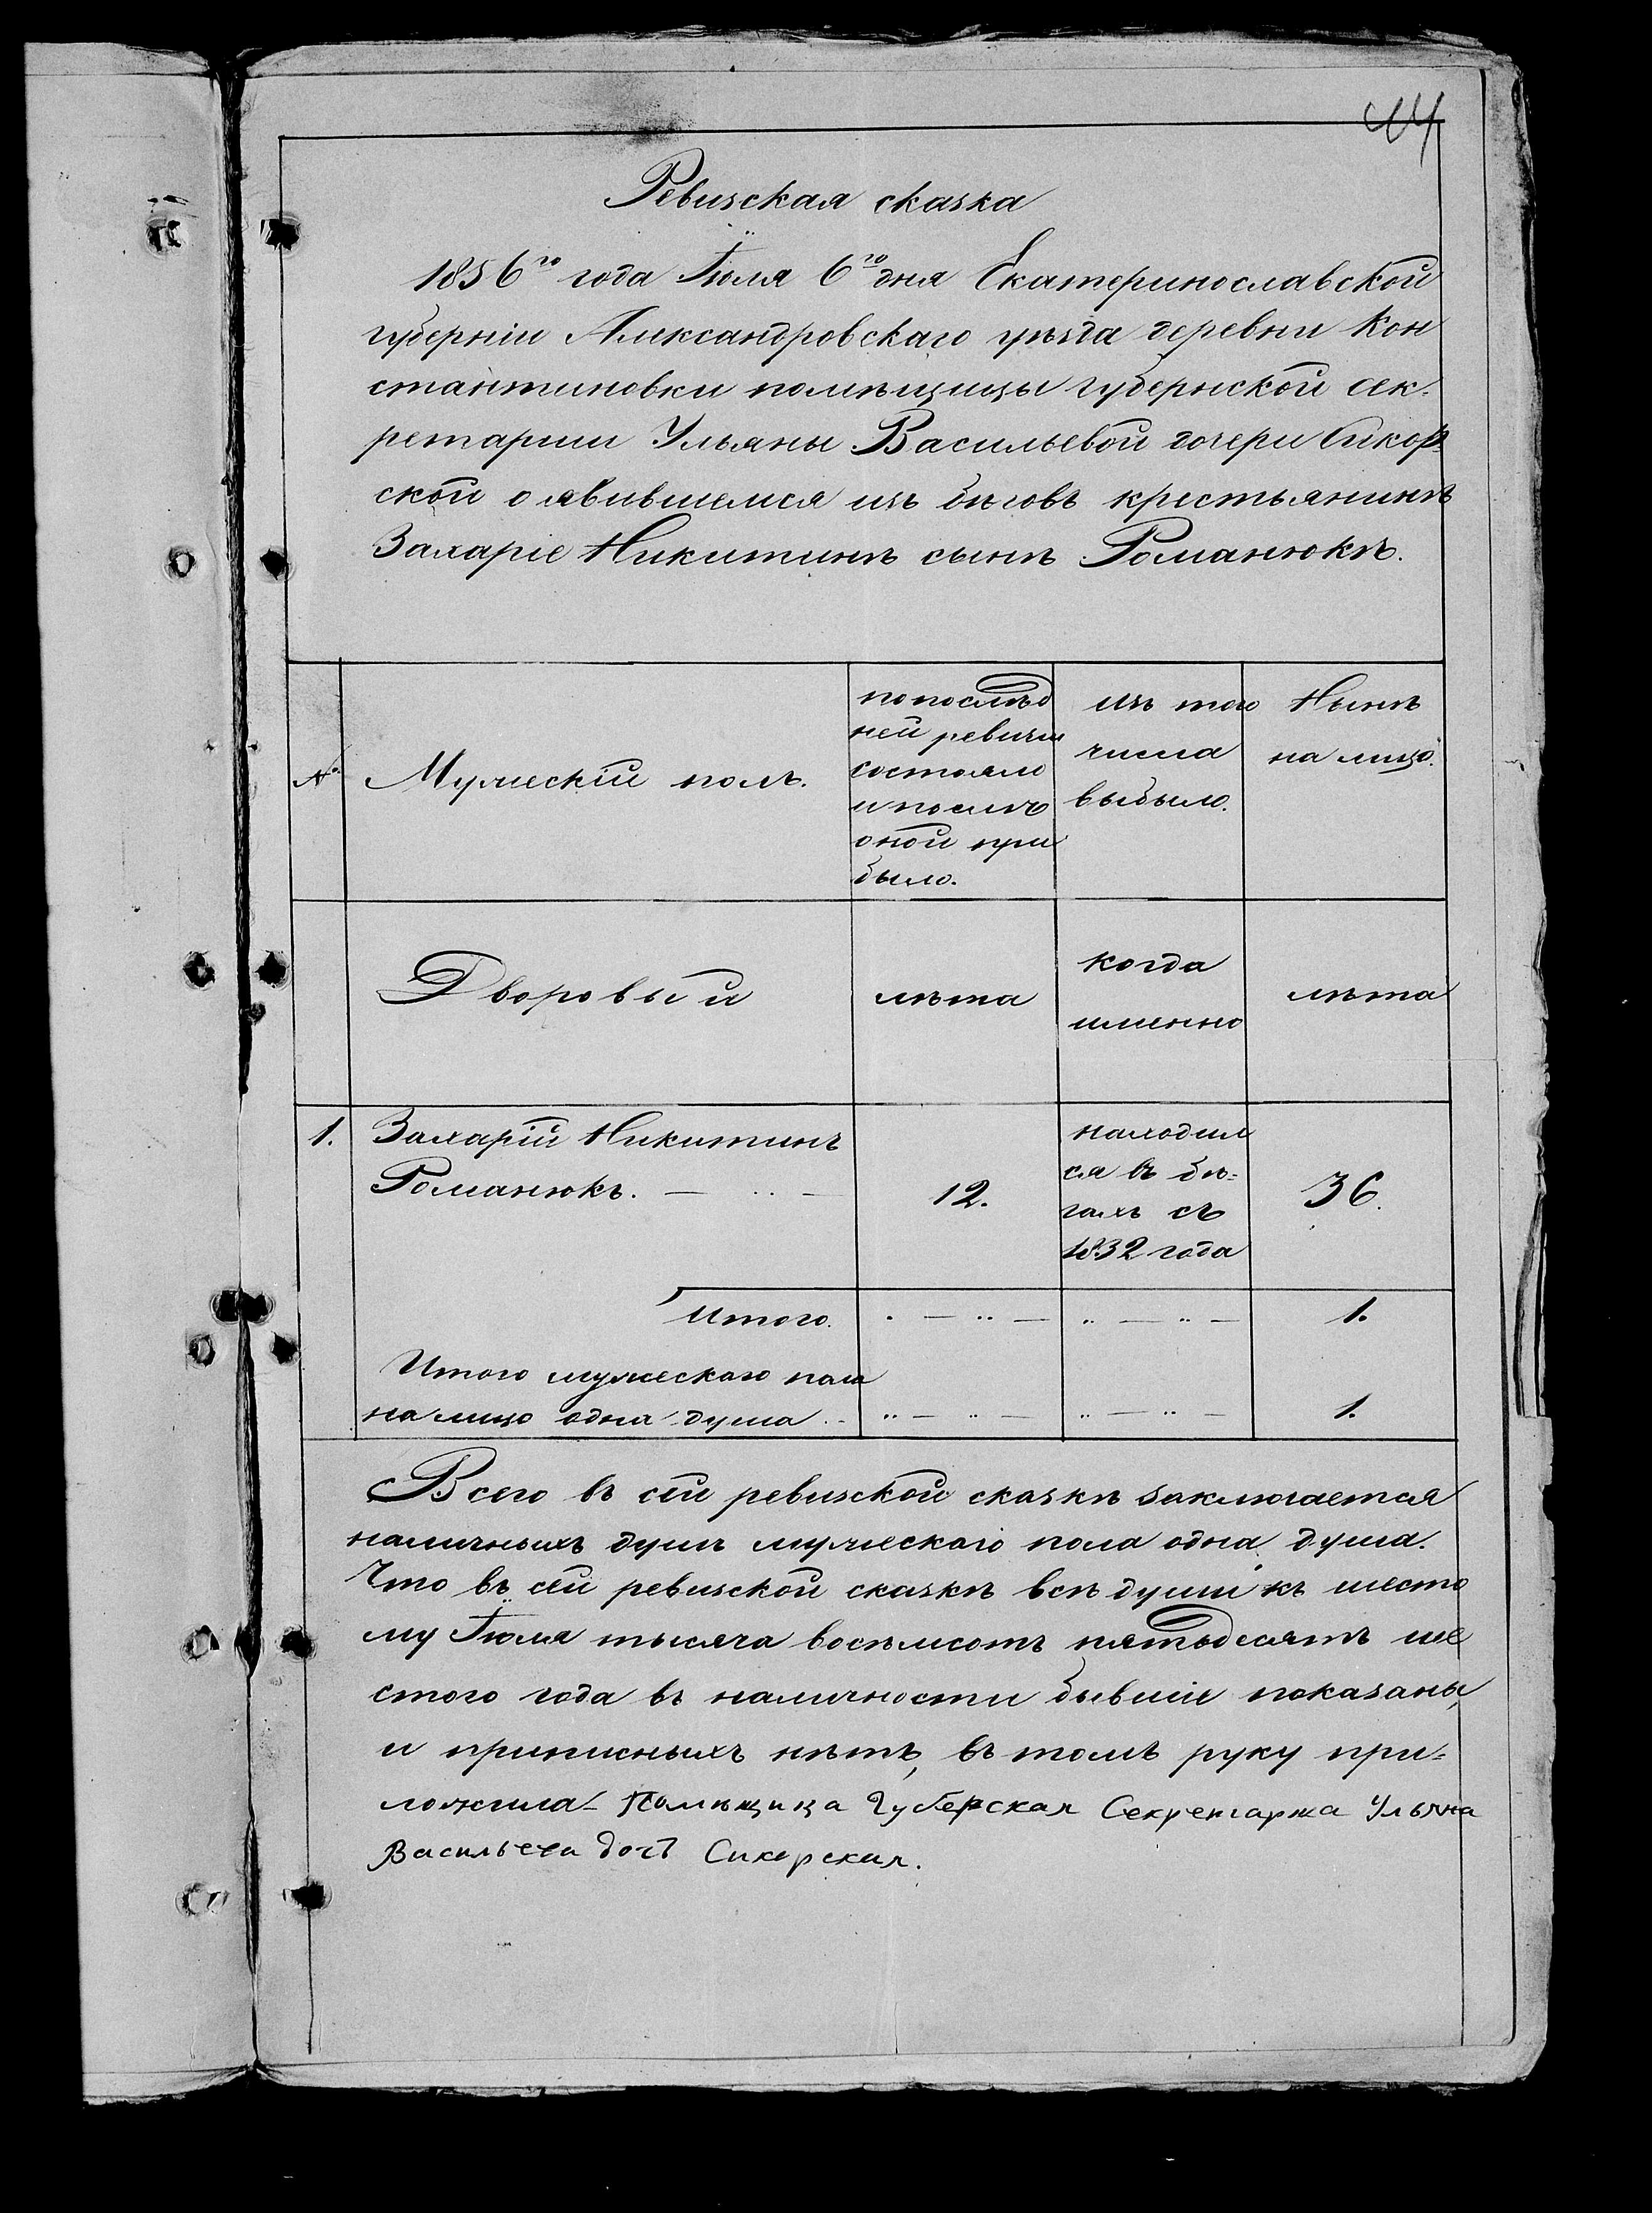 Ревизская сказка
1856го года Іюля 6го дня Екатеринославской
губерніи Александровскаго уѣзда деревни Кон
стантиновки помѣщицы губернской сек-
ретарши Ульяны Васильевой дочери Сикор-
ской о явившемся изъ бѣговъ крестьянинѣ
Захаріе Никитинѣ сынѣ Романюкѣ.
№ Мужескій полъ.
по послѣд
ней ревизіи
состояло
и послѣ
оной при
было.
изъ того
числа
выбыло.
Нынѣ
на лицо.
Дворовый
лѣта
когда
именно
лѣта
1. Захарій Никитинъ
Романюкъ.
12.
находил
ся въ бѣ-
гахъ съ
1832 года
36.
Итого. 1.
Итого мужескаго пола
на лицо одна душа 1.
Всего въ сей ревизской сказкѣ заключается
наличныхъ душъ мужескаго пола одна душа.
Что въ сей ревизской сказкѣ всѣ души къ шесто
му Іюля тысяча восемсотъ пятьдесятъ ше
стого года въ наличности бывшіе показаны,
и приписныхъ нѣтъ, въ томъ руку при-
ложила Помѣщица Губерская Секретарша Ульяна
Васильева дочь Сикорская.